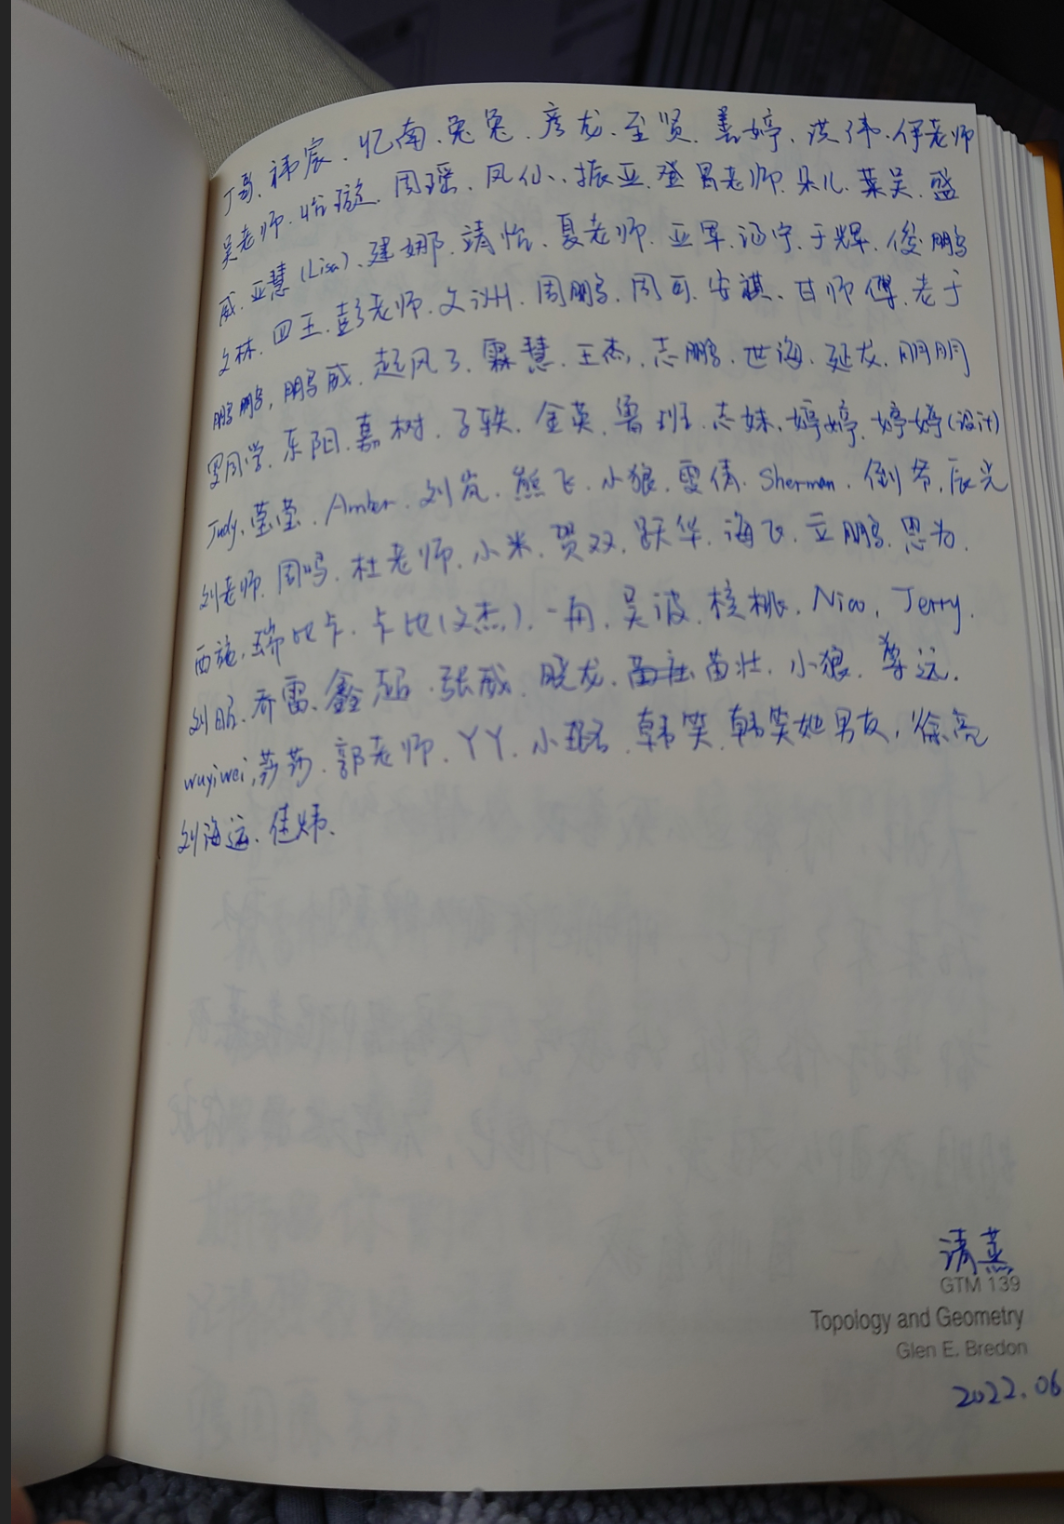 丁勇、祎宸、忆南、兔兔、彦龙、至贤、善婷、洪伟、伊老师
吴老师、怡璇、周瑶、凤仙、振亚、登、吕老师、朵儿、莱昊、盛
威、亚慧(Lisa)、建娜、靖怡、夏老师、亚军、涵宁、于辉、俊鹏
文林、四王、彭老师、文洲、周鹏、周可、安祺、甘师傅、老于
鹏鹏、鹏威、起风了、霖慧、王杰、志鹏、世海、延龙、朋朋
周同学、东阳、嘉树、子轶、金英、鲁班、志妹、婷婷、婷婷(设计)
Judy、莹莹、Amber、刘岚、熊飞、小狼、雯倩、Sherman、倒爷、辰光
刘老师、周鸣、杜老师、小米、贺双、跃华、海飞、立鹏、思为、
西施、瑞比卡、卡比(文杰)、一舟、吴波、核桃、Nico、Jerry、
刘昭、乔雷、鑫超、张威、晓龙、苗壮、小狼、尊远、
wuyiwei、莎莎、郭老师、YY、小璐、韩笑、韩笑她男友、徐亮
刘海运、佳炜、
清蒸
GTM 139
Topology and Geometry
Glen E. Bredon
2022.06